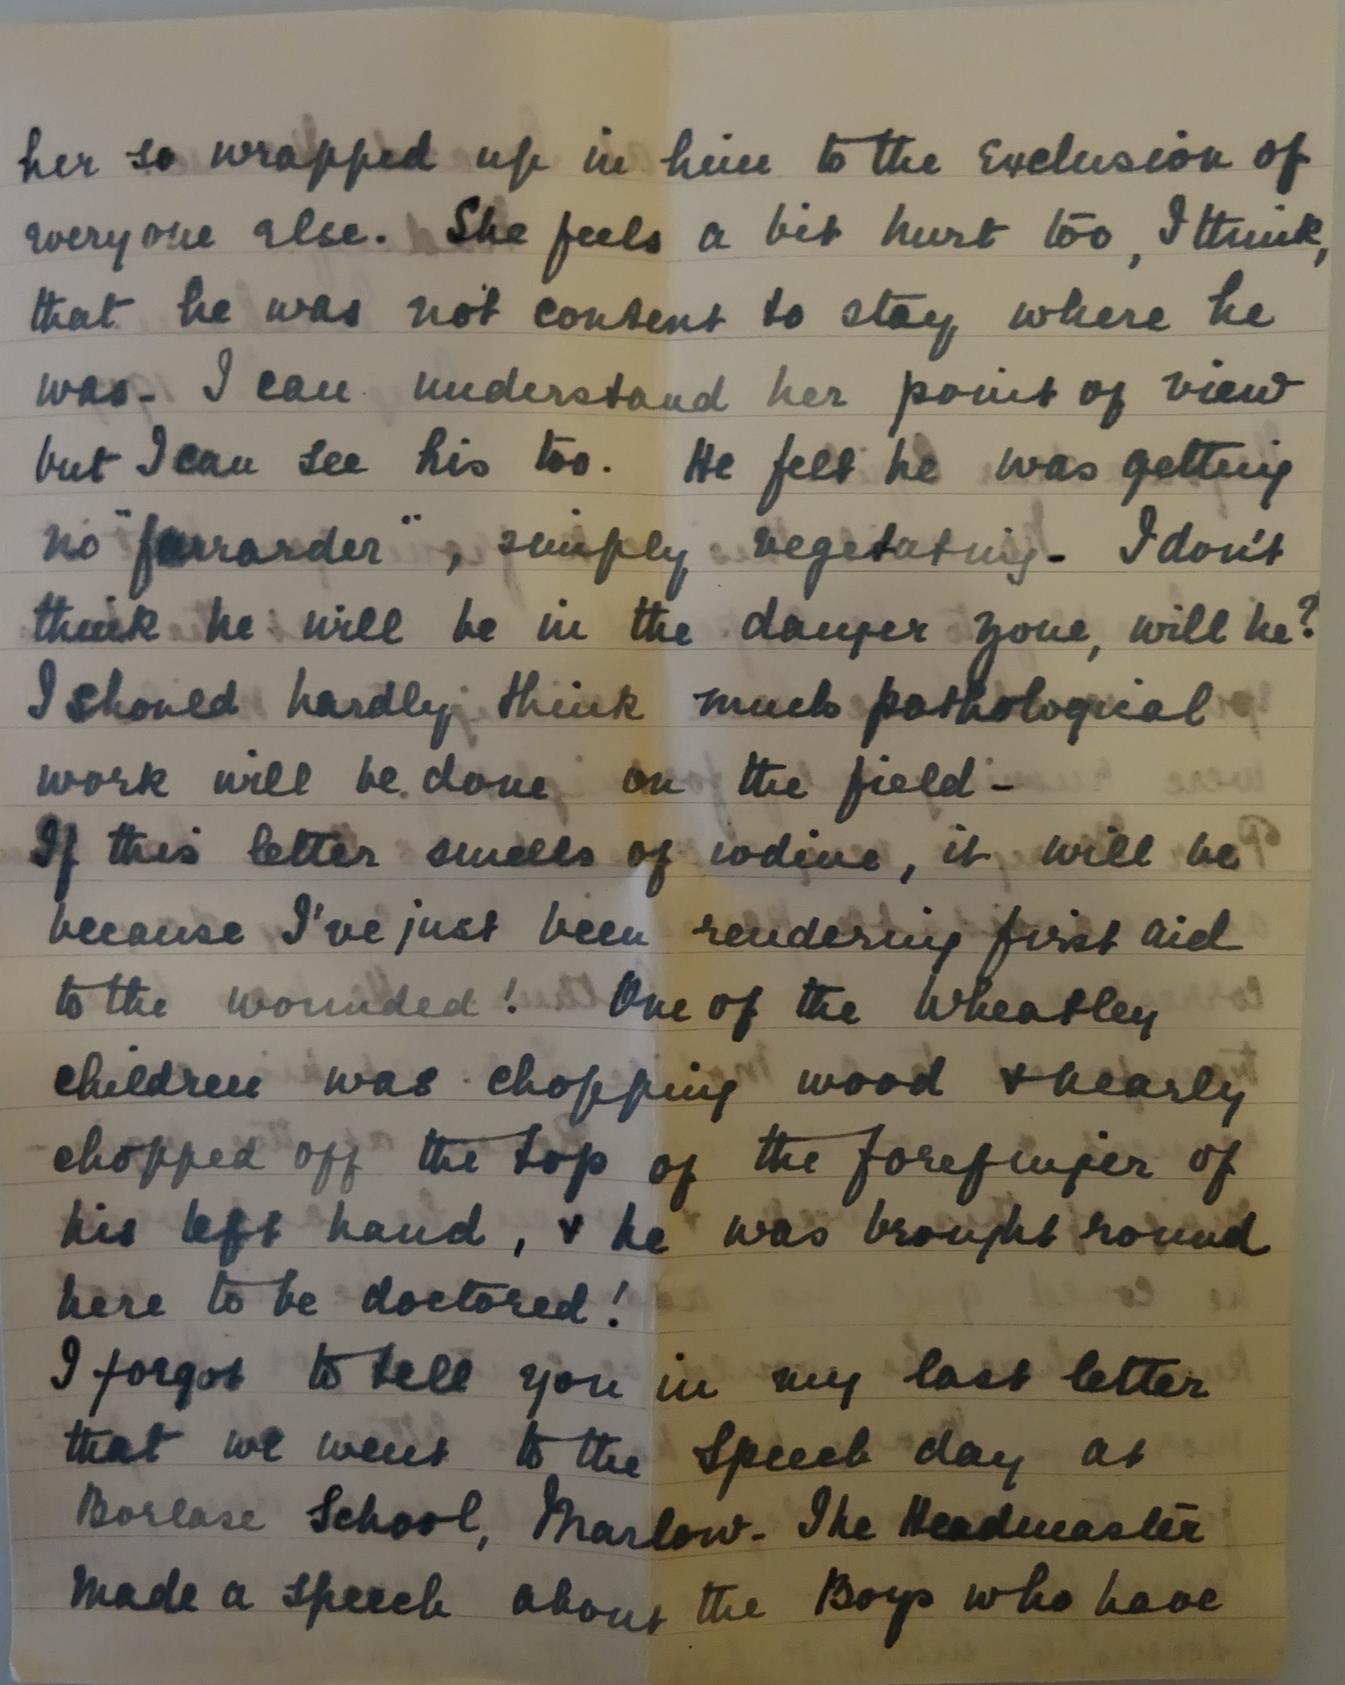 her so wrapped up in him to the Exclusion of
everyone else. She feels a bit hurt too, I think,
that he was not content to stay where he
was- I can understand her point of view
but I can see his too. He felt he was getting
no "farrarder", simply vegetating- I don't
think he will be in the danger zone, will he?
I should hardly think much pathological
work will be done on the field-
If this letter smells of iodine, it will be
because I've just been rendering first aid
to the wounded! One of the Wheatley
children was chopping wood & nearly
chopped off the top of the forefinger of
his left hand, & he was brought round
here to be doctored!
I forgot to tell you in my last letter
that we went to the Speech day at
Borlase School, Marlow- The Headmaster
made a speech about the Boys who have